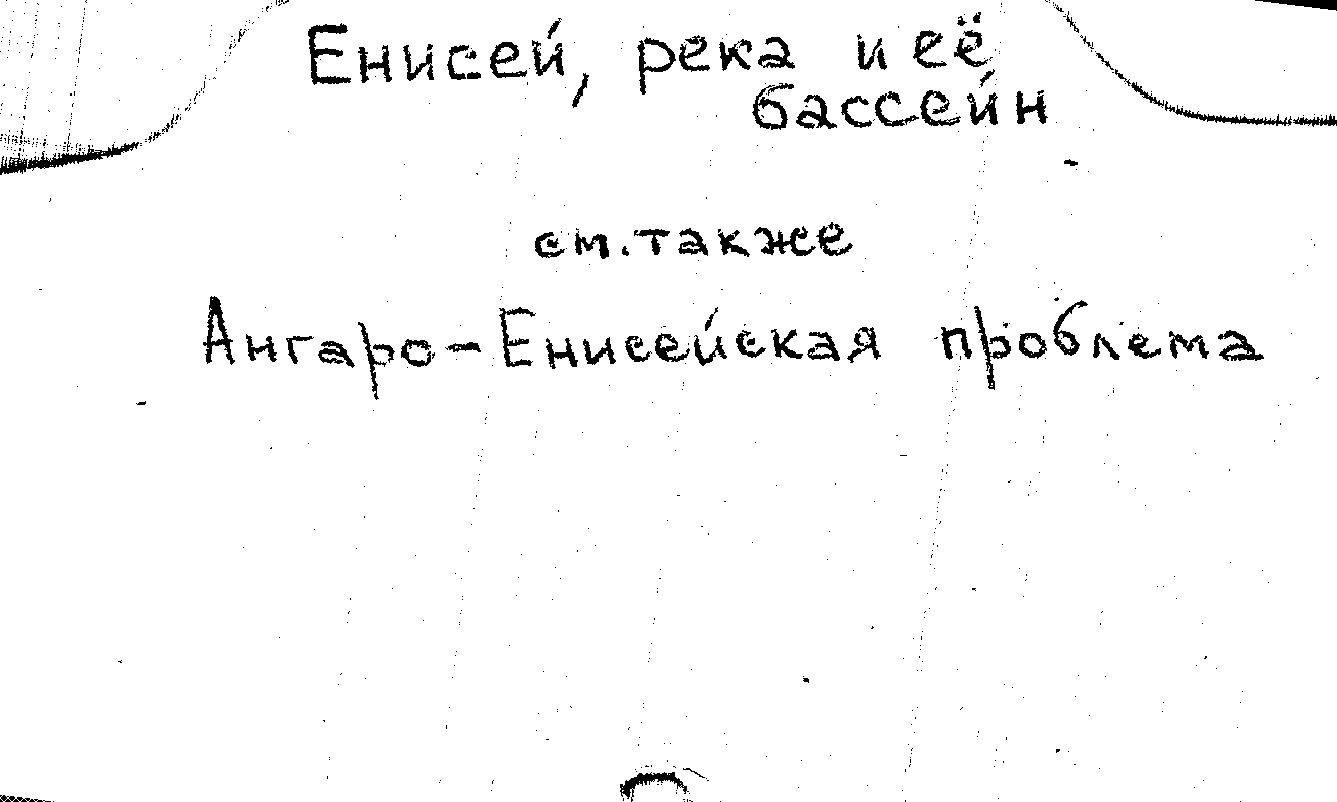 Енисей, река и её
бассейн
см. также
Ангаро-Енисейская проблема